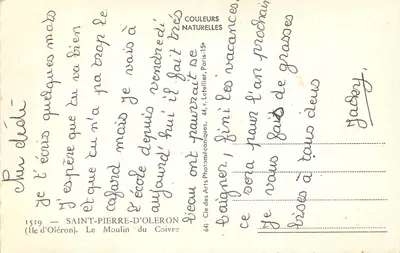 COULEURS
NATURELLES
Cher dédé
je t'écris quelques mots
j'espère que tu va bien
et que tu n'a pa trop le
cafard mais je vais à
l'école depuis vendredi
aujourd'hui il fait très
beau ont pourrait se
baigner, fini les vacances,
ce sera pour l'an prochain
Je vous fais de grosses
bises à tous deus
Jacky.
44, r. Letellier, Paris-15e
641 Cie des Arts Photomécaniques,
1519 — SAINT-PIERRE-D'OLERON
(Ile d'Oléron). Le Moulin du Coivre